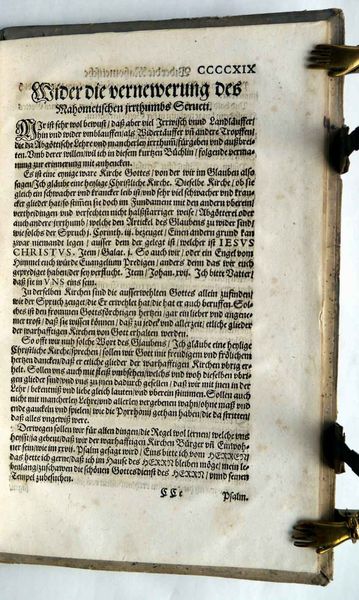 CCCCXIX
Wider die vernewerung des
Mahometischen jrrthumbs Serueti.
MIr ist sehr wol bewust / daß aber viel Irrwisch vnnd Landläuffer /
hin vnd wider vmblauffen / als Widertäuffer vñ andre Tropffen /
die da Abgöttische Lehre vnd mancherley jrrthum̃ / fürgeben vnd außbrei-
ten. Vmb derer willen / wil ich in diesem kurtzen Büchlin / folgende verma-
nung zur erinnerung mit anhencken.
Es ist eine eynige ware Kirche Gottes / von der wir im Glauben also
sagen / Ich gläube eine heylige Christliche Kirche. Dieselbe Kirche / ob sie
gleich ein schwacher vnd krancker leib ist / vnd sehr viel schwacher vnd kran-
cker glieder hat / so stim̃en sie doch im Fundament mit den andern vberein /
vertheidingen vnd verfechten nicht halßstarriger weise / Abgötterei oder
auch andere jrrthumb / welche den Artickel des Glaubens zu wider sind /
wie solchs der Spruch j. Corinth. iij. bezeuget / Einen andern grund kan
zwar niemandt legen / ausser dem der gelegt ist / welcher ist IESVS
CHRISTVS. Item / Galat. i. So auch wir / oder ein Engel vom
Himmel euch würde Euangelium Predigen / anders denn das wir euch
geprediget haben / der sey verflucht. Item / Johan. xvij. Ich bitte Vatter /
daß sie in VNS eins sein.
In derselben Kirchen sind die ausserwehlten Gottes allein zufinden /
wie der Spruch zeuget / die Er erwehlet hat / die hat er auch beruffen. Sol-
ches ist den frommen Gottsförchtigen hertzen / gar ein lieber vnd angene-
mer trost / daß sie wissen können / daß zu jeder vnd allerzeit / etliche glieder
der warhafftigen Kirchen von Gott erhalten werden.
So offt wir nuhn solche Wort des Glaubens / Ich gläube eine heylige
Christliche Kirche / sprechen / sollen wir Gott mit frewdigem vnd frölichem
hertzen dancken / daß er etliche glieder der warhafftigen Kirchen vbrig er-
helt. Sollen vns auch mit fleiß vmbsehen / welchs vnd woh dieselben vbri-
gen glieder sind / vnd vns zu jnen dadurch gesellen / daß wir mit jnen in der
Lehr / bekentnuß vnd liebe gleich lauten / vnd vberein stimmen. Sollen auch
nicht mit mancherley Lehre / vnd allerley vorgebenen wahn / ohne maß vnd
ende gauckeln vnd spielen / wie die Pyrrhonij gethan haben / die da stritten /
daß alles vngewiß were.
Derwegen sollen wir für allen dingen / die Regel wol lernen / welche vns
gebeut / daß wir der warhafftigen Kirchen Bürger vñ Einwoh-
ner sein / wie im xxvij. Psalm gesagt wird / Eins bitte ich vom HERREN
das hette ich gerne / daß ich im Hause des HERRN bleiben möge / mein le-
benlang / zuschawen die schönen Gottesdienst des HERRN / vnnd seinen
Tempel zubesuchen.
CCc
Psalm.